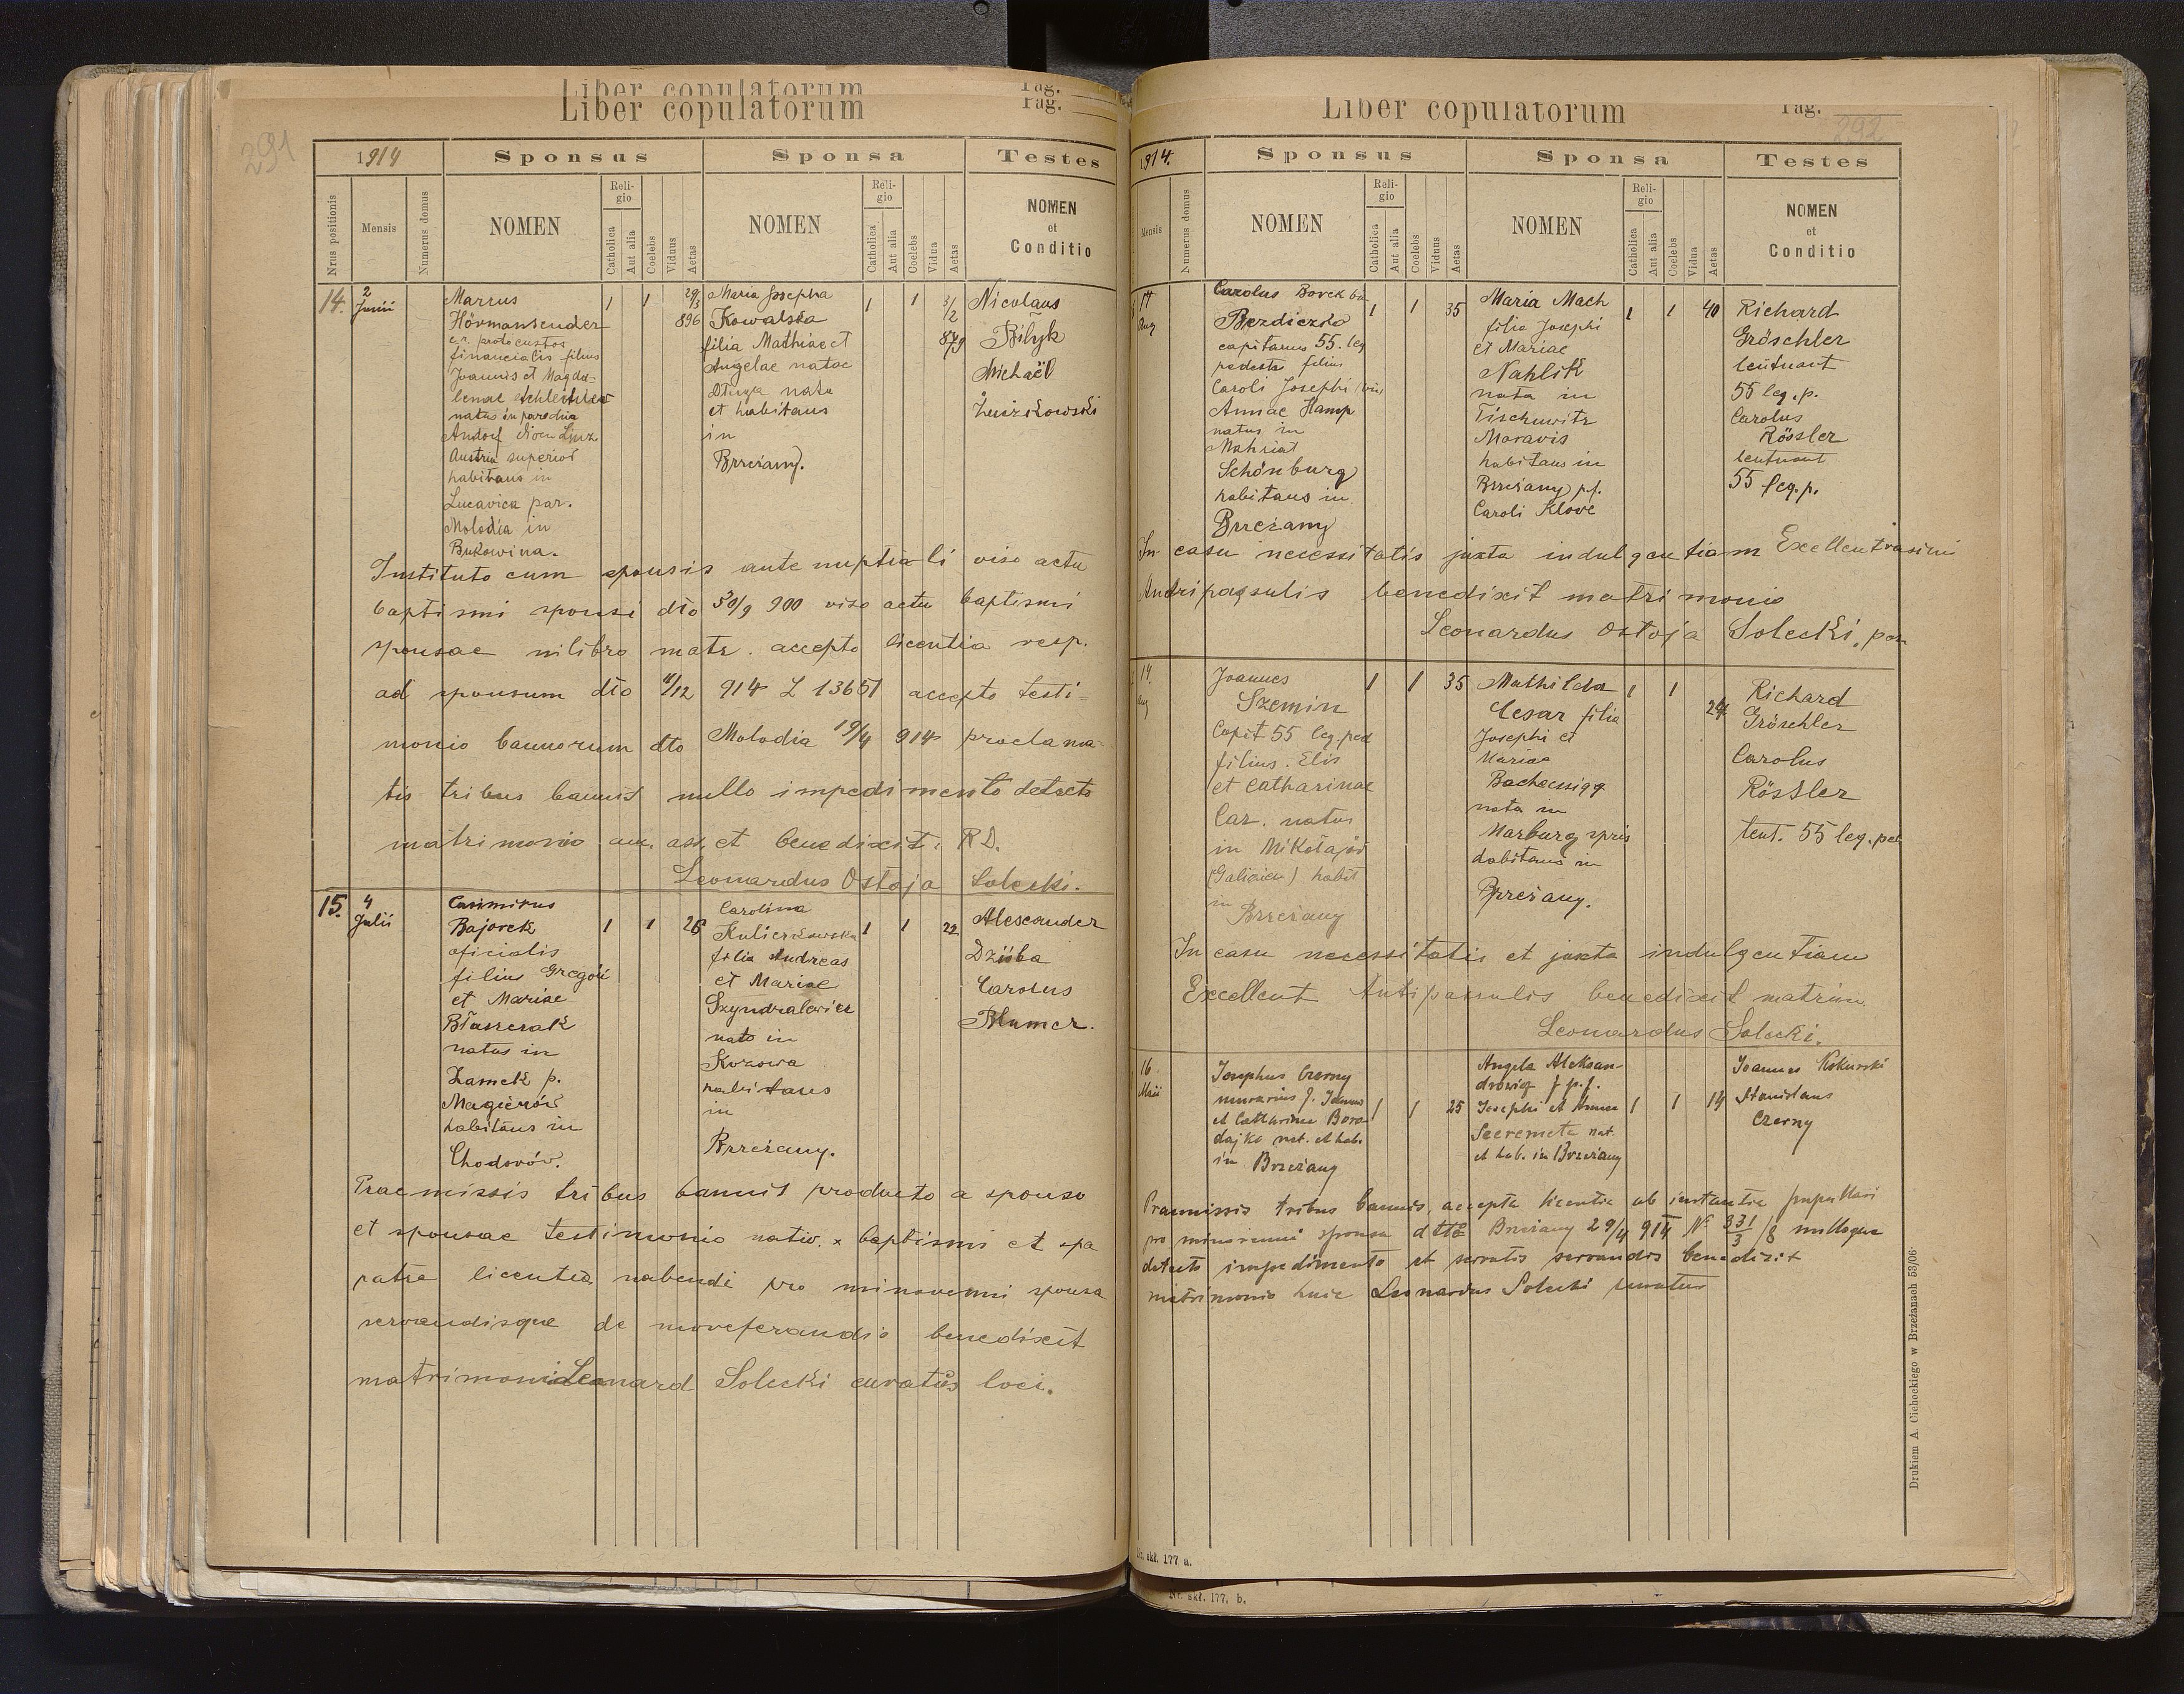 Liber copulatorum
Pag.
Liber copulatorum
Pag.
291
1914
Sponsus
Sponsa
Testes
Nrus positionis
Mensis
Numerus domus
NOMEN
Religio
Catholica
Aut alia
Coelebs
Viduus
Aetas
NOMEN
Religio
Catholica
Aut alia
Coelebs
Vidua
Aetas
NOMEN
et
Conditio
14.
2
Junii
Marcus
Hörmanseder
c. r. protocustos
financialis filius
Joannis et Magda-
lenae
natus in parochia
Andorf
Austria superior
habitans in
Lucavica par.
Molodia in
Bukowina.
1
1
29/3
896
Maria Josepha
Kowalska
filia Mathiae et
Angelae natae
Długa nata
et habitans
in
Brzeżany.
1
1
3/2
879
Nicolaus
Bilyk
Michaël
Instituto cum sponsis ante nuptiali viso actu
baptismi sponsi dto 30/9 900 viso actu baptismi
sponsae in libro matr. accepto licentia resp.
ad sponsum dto 11/12 914 L 13651 accepto testi-
monio bannorum dto Molodia 19/4 914 proclama-
tis tribus bannis nullo impedimento detecto
matrimonio ass. et benedixit. R D.
Leonardus Ostoja Solecki.
15.
4
Julii
Casimirus
Bajorek
oficialis
filius Gregorii
et Mariae
Błaszczak
natus in
Zamek p.
Magierów
habitans in
Chodorów.
1
1
26
Carolina
Kulczkowska
filia Andreas
et Mariae
Szyndralewicz
nata in
Kozowa
habitans
in
Brzeżany.
1
1
22.
Alexander
Dziuba
Carolus
Blumer.
Praemissis tribus bannis producto a sponso
et sponsae testimonio nativ. x baptismi et spa
patre licentia nubendi pro minorenni sponsa
servandisque de more benedixit
matrimonio Leonard Solecki curatus loci.
Liber copulatorum
Pag.
292
1914.
Sponsus
Sponsa
Testes
Mensis
Numerus domus
NOMEN
Religio
Catholica
Aut alia
Coelebs
Viduus
Aetas
NOMEN
Religio
Catholica
Aut alia
Coelebs
Vidua
Aetas
NOMEN
et
Conditio
14
Aug
Carolus Borek
Bezdiczka
capitanus 55. leg
pedestr filius
Caroli Josephi
Annae Hamp
natus in
Mahrisat
Schönburg
habitans in
Brzeżany
1
1
35
Maria Mach
filia Josephi
et Mariae
Nahlik
nata in
Tischnwitz
Moravis
habitans in
Brzeżany p.f.
Caroli Klove
1
1
40
Richard
Gröschler
leutnant
55 leg. p.
Carolus
Rössler
leutnant
55 leg. p.
In casu necessitatis juxta indulgentiam Excellentissimi
benedixit matrimonio
Leonardus Ostoja Solecki,
14.
Aug
Joannes
Szemin
Capit 55 leg. ped
filius. Elis
et Catharinae
Car. natus
in Mikołajów
(Galicien) habit
in Brzeżany
1
1
35
Mathilda
Cesar filia
Josephi et
Mariae
nata in
Marburg
habitans in
Brzeżany.
1
1
24
Richard
Gröschler
Carolus
Rössler
leut. 55 leg. ped
In casu necessitatis et juxta indulgentiam
Excellent benedixit matrim.
Leonardus Solecki.
16
Maii
Josephus Czerny
murarius f. Joannis
et Catharinae Boro-
dajko nat. et hab.
in Brzeżany
1
1
25
Angela Aleksan-
drowicz f. p. f.
Josephi et Annae
Szeremeta nat.
et hab. in Brzeżany
1
1
19
Joannes
Stanislaus
Czerny
Praemissis tribus bannis, accepta licentia ab instantia pupillari
pro minorenni sponsa dtto Brzeżany 29/4 914 N. 331/3 /8 nulloque
detecto impedimento et servatis servandis benedixit
matrimonio huic Leonardus Solecki curatus
Drukiem A. Cichockiego w Brzeżanach 53/06.
Nr. skł. 177 a.
Nr. skł. 177. b.